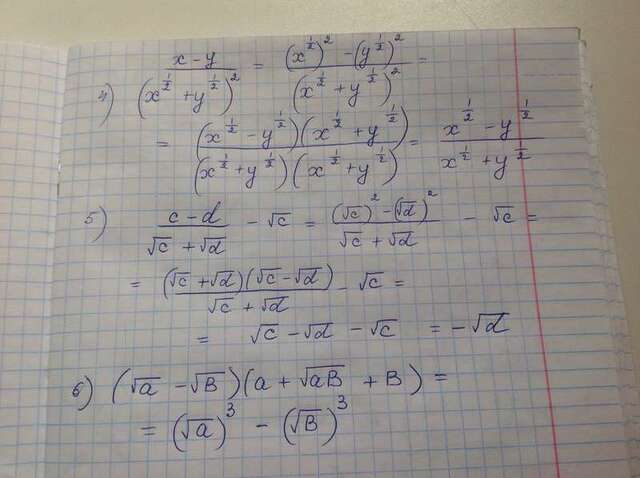 4) (x - y)/(x^(1/2) + y^(1/2))^2 = ((x^(1/2))^2 - (y^(1/2))^2)/(x^(1/2) + y^(1/2))^2 =
= ((x^(1/2) - y^(1/2))(x^(1/2) + y^(1/2)))/((x^(1/2) + y^(1/2))(x^(1/2) + y^(1/2))) = (x^(1/2) - y^(1/2))/(x^(1/2) + y^(1/2))
5) (c - d)/(√c + √d) - √c = ((√c)^2 - (√d)^2)/(√c + √d) - √c =
= ((√c + √d)(√c - √d))/(√c + √d) - √c =
= √c - √d - √c = -√d
6) (√a - √B)(a + √aB + B) =
= (√a)^3 - (√B)^3